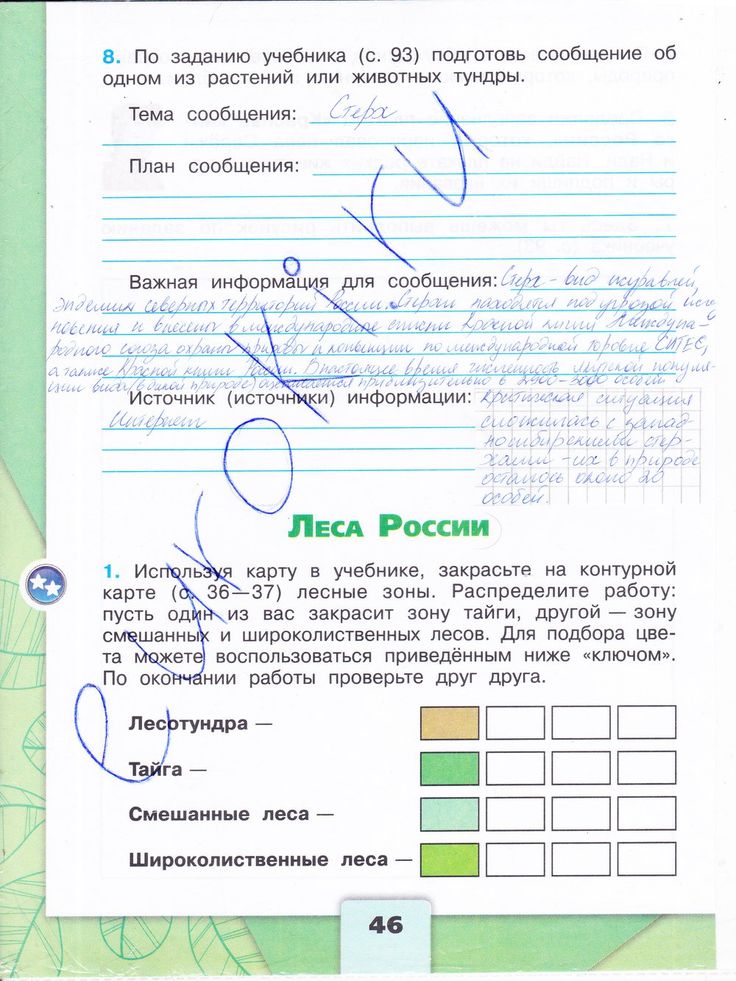 8. По заданию учебника (с. 93) подготовь сообщение об
одном из растений или животных тундры.
Тема сообщения: Стерх
План сообщения:
Важная информация для сообщения: Стерх - вид журавлей,
эндемик северных территорий России. Стерхи находятся под угрозой исчез-
новения и внесены в международные списки Красной книги Междуна-
родного союза охраны природы и конвенции по международной торговле СИТЕС,
а также Красной книги России. В настоящее время численность якутской популя-
ции вида в дикой природе оценивается приблизительно в 2900-3000 особей
Источник (источники) информации: критическая ситуация
Интернет
сложилась с запад-
носибирскими стер-
хами - их в природе
осталось около 20
особей.
еигокi.ru
Леса России
1. Используя карту в учебнике, закрасьте на контурной
карте (с. 36—37) лесные зоны. Распределите работу:
пусть один из вас закрасит зону тайги, другой — зону
смешанных и широколиственных лесов. Для подбора цве-
та можете воспользоваться приведённым ниже «ключом».
По окончании работы проверьте друг друга.
Лесотундра —
Тайга —
Смешанные леса —
Широколиственные леса —
46